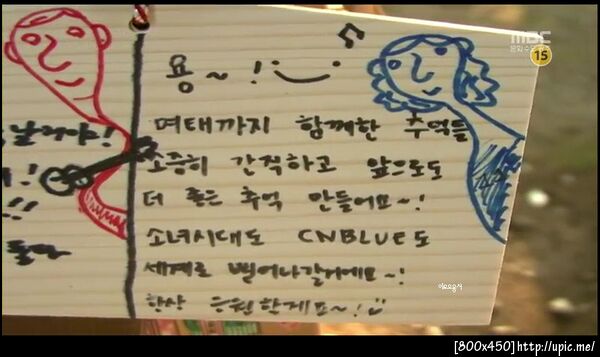 MBC
15
용~!
여태까지 함께한 추억들
소중히 간직하고 앞으로도
더 좋은 추억 만들어요~!
소녀시대도 CNBLUE도
세계로 뻗어나갈거에요~!
항상 응원할게요~!
[800x450]http://upic.me/